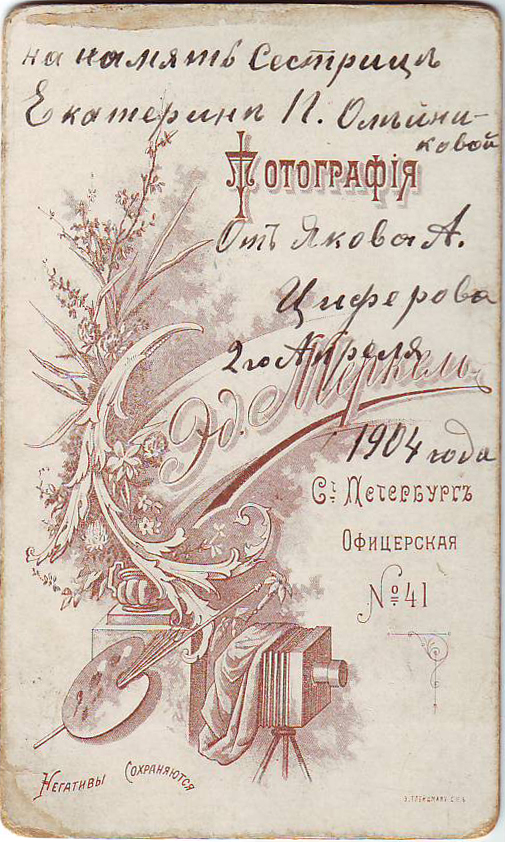 на память Сестрицѣ
Екатеринѣ П.
ковой
Фотографія
Отъ Якова А.
Циферова
2го Апреля
Эд. Меркель
1904 года
С.ъ Петербургъ
Офицерская
№ 41
Негативы сохраняются